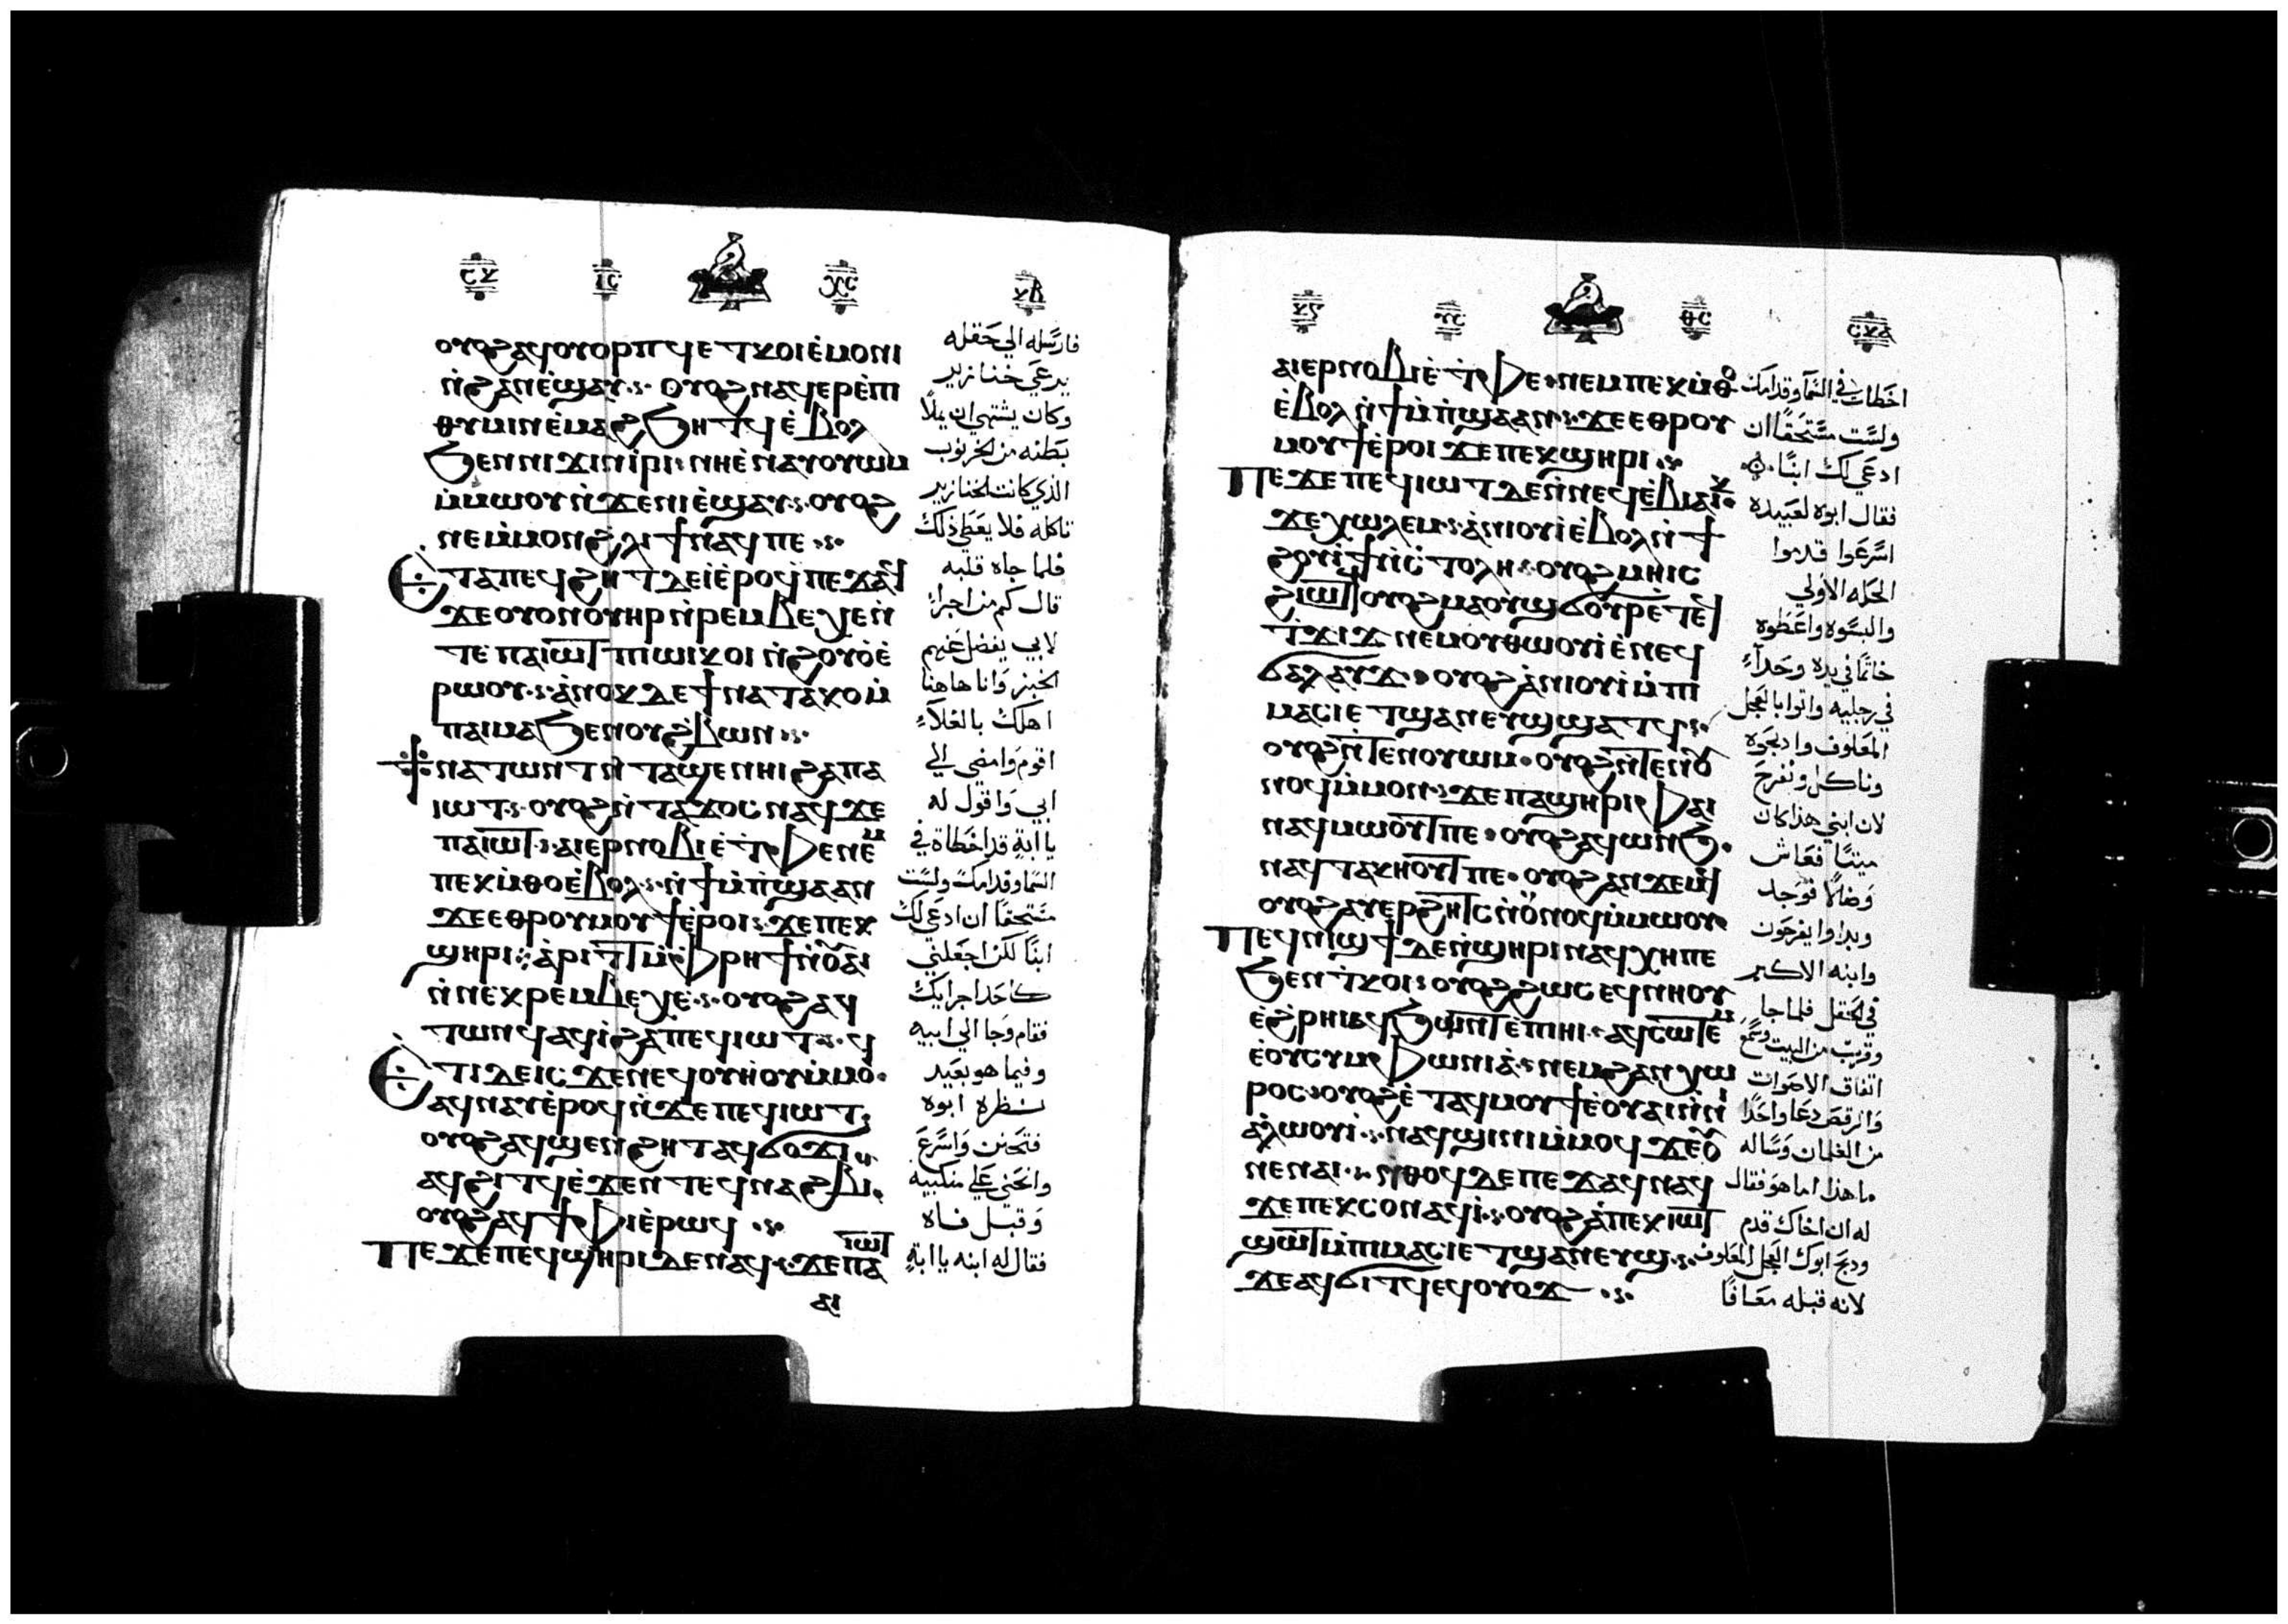 ⲟⲩⲟϩ ⲁϥⲟⲩⲟⲣⲡϥ ⲉⲧⲕⲟⲓ ⲉ̀ⲙⲟⲛⲓ
ⲛ̀ϩⲁⲛⲉ̀ϣⲁⲩ ⲟⲩⲟϩ ⲛⲁϥⲉⲣⲉ̀ⲡⲓ
ⲑⲩⲙⲓⲛ ⲉ̀ⲙⲁϩ ϧⲏⲧϥ ⲉ̀ⲃⲟⲗ
ϧⲉⲛ ⲛⲓϫⲓⲛⲓⲣⲓ ⲛⲏ ⲉ̀ⲛⲁⲩⲟⲩⲱⲙ
ⲙ̀ⲙⲱⲟⲩ ⲛ̀ϫⲉ ⲛⲓⲉ̀ϣⲁⲩ ⲟⲩⲟϩ
ⲛⲉ ⲙ̀ⲙⲟⲛ ϩⲗⲓ ϯ ⲛⲁϥ ⲡⲉ
ⲉ̀ⲧⲁ ⲡⲉϥϩⲏⲧ ⲇⲉ ⲓ̀ ⲉ̀ⲣⲟϥ ⲡⲉϫⲁϥ
ϫⲉ ⲟⲩⲟⲛ ⲟⲩⲏⲣ ⲛ̀ⲣⲉⲙⲃⲉⲭⲉ ⲛ̀
ⲧⲉ ⲡⲁⲓⲱⲧ ⲡⲓⲱⲓⲕ ⲟⲓ ⲛ̀ϩⲟⲩⲟ̀ ⲉ̀
ⲣⲱⲟⲩ ⲁ̀ⲛⲟⲕ ⲇⲉ ϯⲛⲁⲧⲁⲕⲟ ⲙ̀
ⲡⲁⲓⲙⲁ ϧⲉⲛ ⲟⲩϩⲃⲱⲛ
ϯⲛⲁⲧⲱⲛⲧ ⲛ̀ⲧⲁϣⲉ ⲛⲏⲓ ϩⲁ ⲡⲁ
ⲓⲱⲧ ⲟⲩⲟϩ ⲛ̀ⲧⲁϫⲟⲥ ⲛⲁϥ ϫⲉ
ⲡⲁⲓⲱⲧ ⲁⲓⲉⲣⲛⲟⲃⲓ ⲉ̀ⲧⲫⲉ ⲛⲉⲙ
ⲡⲉⲕⲙ̀ⲑⲟ ⲉ̀ⲃⲟⲗ ⲛ̀ϯⲙ̀ⲡϣⲁ ⲁⲛ
ϫⲉ ⲉⲑⲣⲟⲩⲙⲟⲩϯ ⲉ̀ⲣⲟⲓ ϫⲉ ⲡⲉⲕ
ϣⲏⲣⲓ ⲁ̀ⲣⲓⲧ ⲙ̀ⲫⲣⲏϯ ⲛ̀ⲟⲩⲁⲓ
ⲛ̀ⲛⲉⲕⲣⲉⲙⲃⲉⲭⲉ ⲟⲩⲟϩ ⲁϥ
ⲧⲱⲛϥ ⲁϥⲓ̀ ϩⲁ ⲡⲉϥⲓⲱⲧ
ⲉ̀ⲧⲓ ⲇⲉⲓⲥϫⲉⲛ ⲉϥⲟⲩⲏⲟⲩ ⲙ̀ⲙⲟ
ⲁϥⲛⲁⲩ ⲉ̀ⲣⲟϥ ⲛ̀ϫⲉ ⲡⲉϥⲓⲱⲧ
ⲟⲩⲟϩ ⲁϥϣⲉⲛϩⲏⲧ ⲁϥϭⲟϫⲓ
ⲁϥϩⲓⲧϥ ⲉ̀ϫⲉⲛ ⲧⲉϥⲛⲁϩⲃⲓ
ⲟⲩⲟϩ ⲁϥϯⲫⲓ ⲉ̀ⲣⲱϥ
ⲡⲉϫⲉ ⲡⲉϥϣⲏⲣⲓ ⲇⲉ ⲛⲁϥ ϫⲉ ⲡⲁⲓⲱⲧ
ⲁⲓ
فارسله الي حقله
يرعي خنازير
وكان يشتهي ان يملا
بطنه من الخرنوب
الذي كانت الخنازير
تاكله فلا يعطي ذلك
فلما جاه قلبه
قال كم من اجراء
لابي يفضل عنهم
الخبز وانا هاهنا
اهلك بالغلاء
اقوم وامضي الي
ابي واقول له
يا ابة قد اخطاة في
السما وقدامك ولست
مستحقا ان ادعي لك
ابنا لكن اجعلني
كاحد اجرايك
فقام وجا الي ابيه
وفيما هو بعيد
نظره ابوه
فتحنن واسرع
وانحني علي منكبيه
وقبل فاه
فقال له ابنه يا ابة
ⲁⲓⲉⲣⲛⲟⲃⲓ ⲉ̀ⲧⲫⲉ ⲛⲉⲙ ⲡⲉⲕⲙ̀ⲑⲟ
ⲉ̀ⲃⲟⲗ ⲛ̀ϯⲙ̀ⲡϣⲁ ⲁⲛ ϫⲉ ⲉⲑⲣⲟⲩ
ⲙⲟⲩϯ ⲉ̀ⲣⲟⲓ ϫⲉ ⲡⲉⲕϣⲏⲣⲓ
ⲡⲉϫⲉ ⲡⲉϥⲓⲱⲧ ⲇⲉ ⲛ̀ⲛⲉϥⲉ̀ⲃⲓⲁⲓⲕ
ϫⲉ ⲭⲱⲗⲉⲙ ⲁ̀ⲛⲓⲟⲩⲓ̀ ⲉ̀ⲃⲟⲗ ⲛ̀ϯ
ϩⲟⲩⲓ̀ϯ ⲛ̀ⲥ̀ⲧⲟⲗⲏ ⲟⲩⲟϩ ⲙⲏⲓⲥ
ϩⲓⲱⲧϥ ⲟⲩⲟϩ ⲙⲁ ⲟⲩϣϭⲟⲩⲣ ⲉ̀ⲧⲉϥ
ϫⲓϫ ⲛⲉⲙ ⲟⲩⲑⲱⲟⲩⲓ̀ ⲉ̀ⲛⲉϥ
ϭⲁⲗⲁⲩϫ ⲟⲩⲟϩ ⲁ̀ⲛⲓⲟⲩⲓ̀ ⲙ̀ⲡⲓ
ⲙⲁⲥⲓ ⲉⲧϣⲁⲛⲉⲩϣ ϣⲁⲧϥ
ⲟⲩⲟϩ ⲛ̀ⲧⲉⲛⲟⲩⲱⲙ ⲟⲩⲟϩ ⲛ̀ⲧⲉⲛⲟⲩ
ⲛⲟϥ ⲙ̀ⲙⲟⲛ ϫⲉ ⲡⲁϣⲏⲣⲓ ⲫⲁⲓ
ⲛⲁϥⲙⲱⲟⲩⲧ ⲡⲉ ⲟⲩⲟϩ ⲁϥⲱⲛϧ
ⲛⲁϥⲧⲁⲕⲏⲟⲩⲧ ⲡⲉ ⲟⲩⲟϩ ⲁⲛϫⲉⲙϥ
ⲟⲩⲟϩ ⲁⲩⲉⲣϩⲏⲧⲥ ⲛ̀ⲟⲩⲛⲟϥ ⲙ̀ⲙⲱⲟⲩ
ⲡⲉϥⲛⲓϣϯ ⲇⲉ ⲛ̀ϣⲏⲣⲓ ⲛⲁϥⲭⲏ ⲡⲉ
ϧⲉⲛ ⲧⲕⲟⲓ ⲟⲩⲟϩ ϩⲱⲥ ⲉϥⲛⲏⲟⲩ
ⲉ̀ϩⲣⲏⲓ ⲁϥϧⲱⲛⲧ ⲉ̀ⲡⲓⲏⲓ ⲁϥⲥⲱⲧⲉⲙ
ⲉ̀ⲟⲩⲥⲩⲙⲫⲱⲛⲓⲁ̀ ⲛⲉⲙ ϩⲁⲛⲭⲱ
ⲣⲟⲥ ⲟⲩⲟϩ ⲉ̀ⲧⲁϥⲙⲟⲩϯ ⲉ̀ⲟⲩⲁⲓ ⲛ̀ⲛⲓ
ⲁ̀ⲗⲱⲟⲩⲓ̀ ⲛⲁϥϣⲓⲛⲓ ⲙ̀ⲙⲟϥ ϫⲉ ⲟⲩ
ⲛⲉ ⲛⲁⲓ ⲛ̀ⲑⲟϥ ⲇⲉ ⲡⲉϫⲁϥ ⲛⲁϥ
ϫⲉ ⲡⲉⲕⲥⲟⲛ ⲁϥⲓ̀ ⲟⲩⲟϩ ⲁ̀ ⲡⲉⲕⲓⲱⲧ
ϣⲱⲧ ⲙ̀ⲡⲓⲙⲁⲥⲓ ⲉⲧϣⲁⲛⲉⲩϣ
ϫⲉ ⲁϥϭⲓⲧϥ ⲉϥⲟⲩⲟϫ
اخطات في السما وقدامك
ولست مستحقا ان
ادعي لك ابنا
فقال ابوه لعبيده
اسرعوا قدموا
الحله الاولي
والبسوه واعطوه
خاتما في يده وحداء
في رجليه واتوا بالعجل
المعلوف وادبحوه
وناكل ونفرح
لان ابني هذا كان
ميتا فعاش
وضالا فوجد
وبداوا يفرحون
وابنه الاكبر
في الحقل فلما جا
وقرب من البيت وسمع
اتفاق الاصوات
والرقص دعا واحدا
من الغلمان وساله
ما هذا اما هو فقال
له ان اخاك قدم
ودبح ابوك العجل المعلوف
لانه قبله معافا